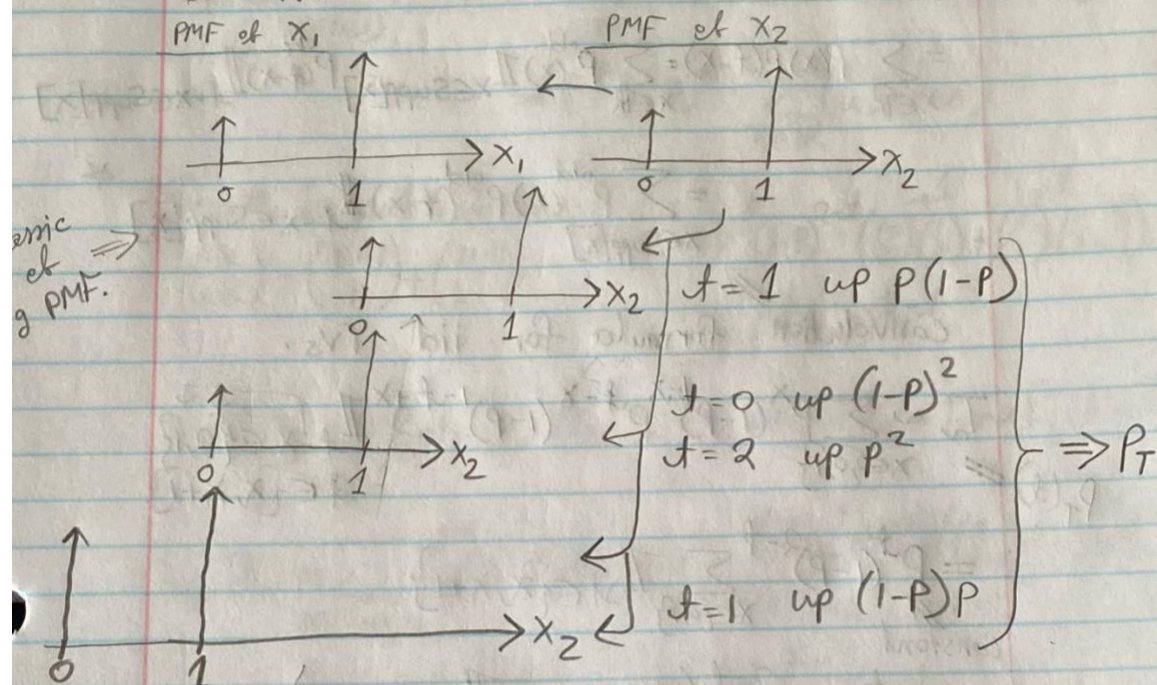 PMF of X₁
PMF of X₂
0 1 X₁
0 1 X₂
of
g PMF.
⇒
0 1 X₂
t = 1 up p(1-p)
0 1 X₂
t = 0 up (1-p)²
t = 2 up p²
⇒ P_T
0 1 X₂
t = 1 up (1-p)p